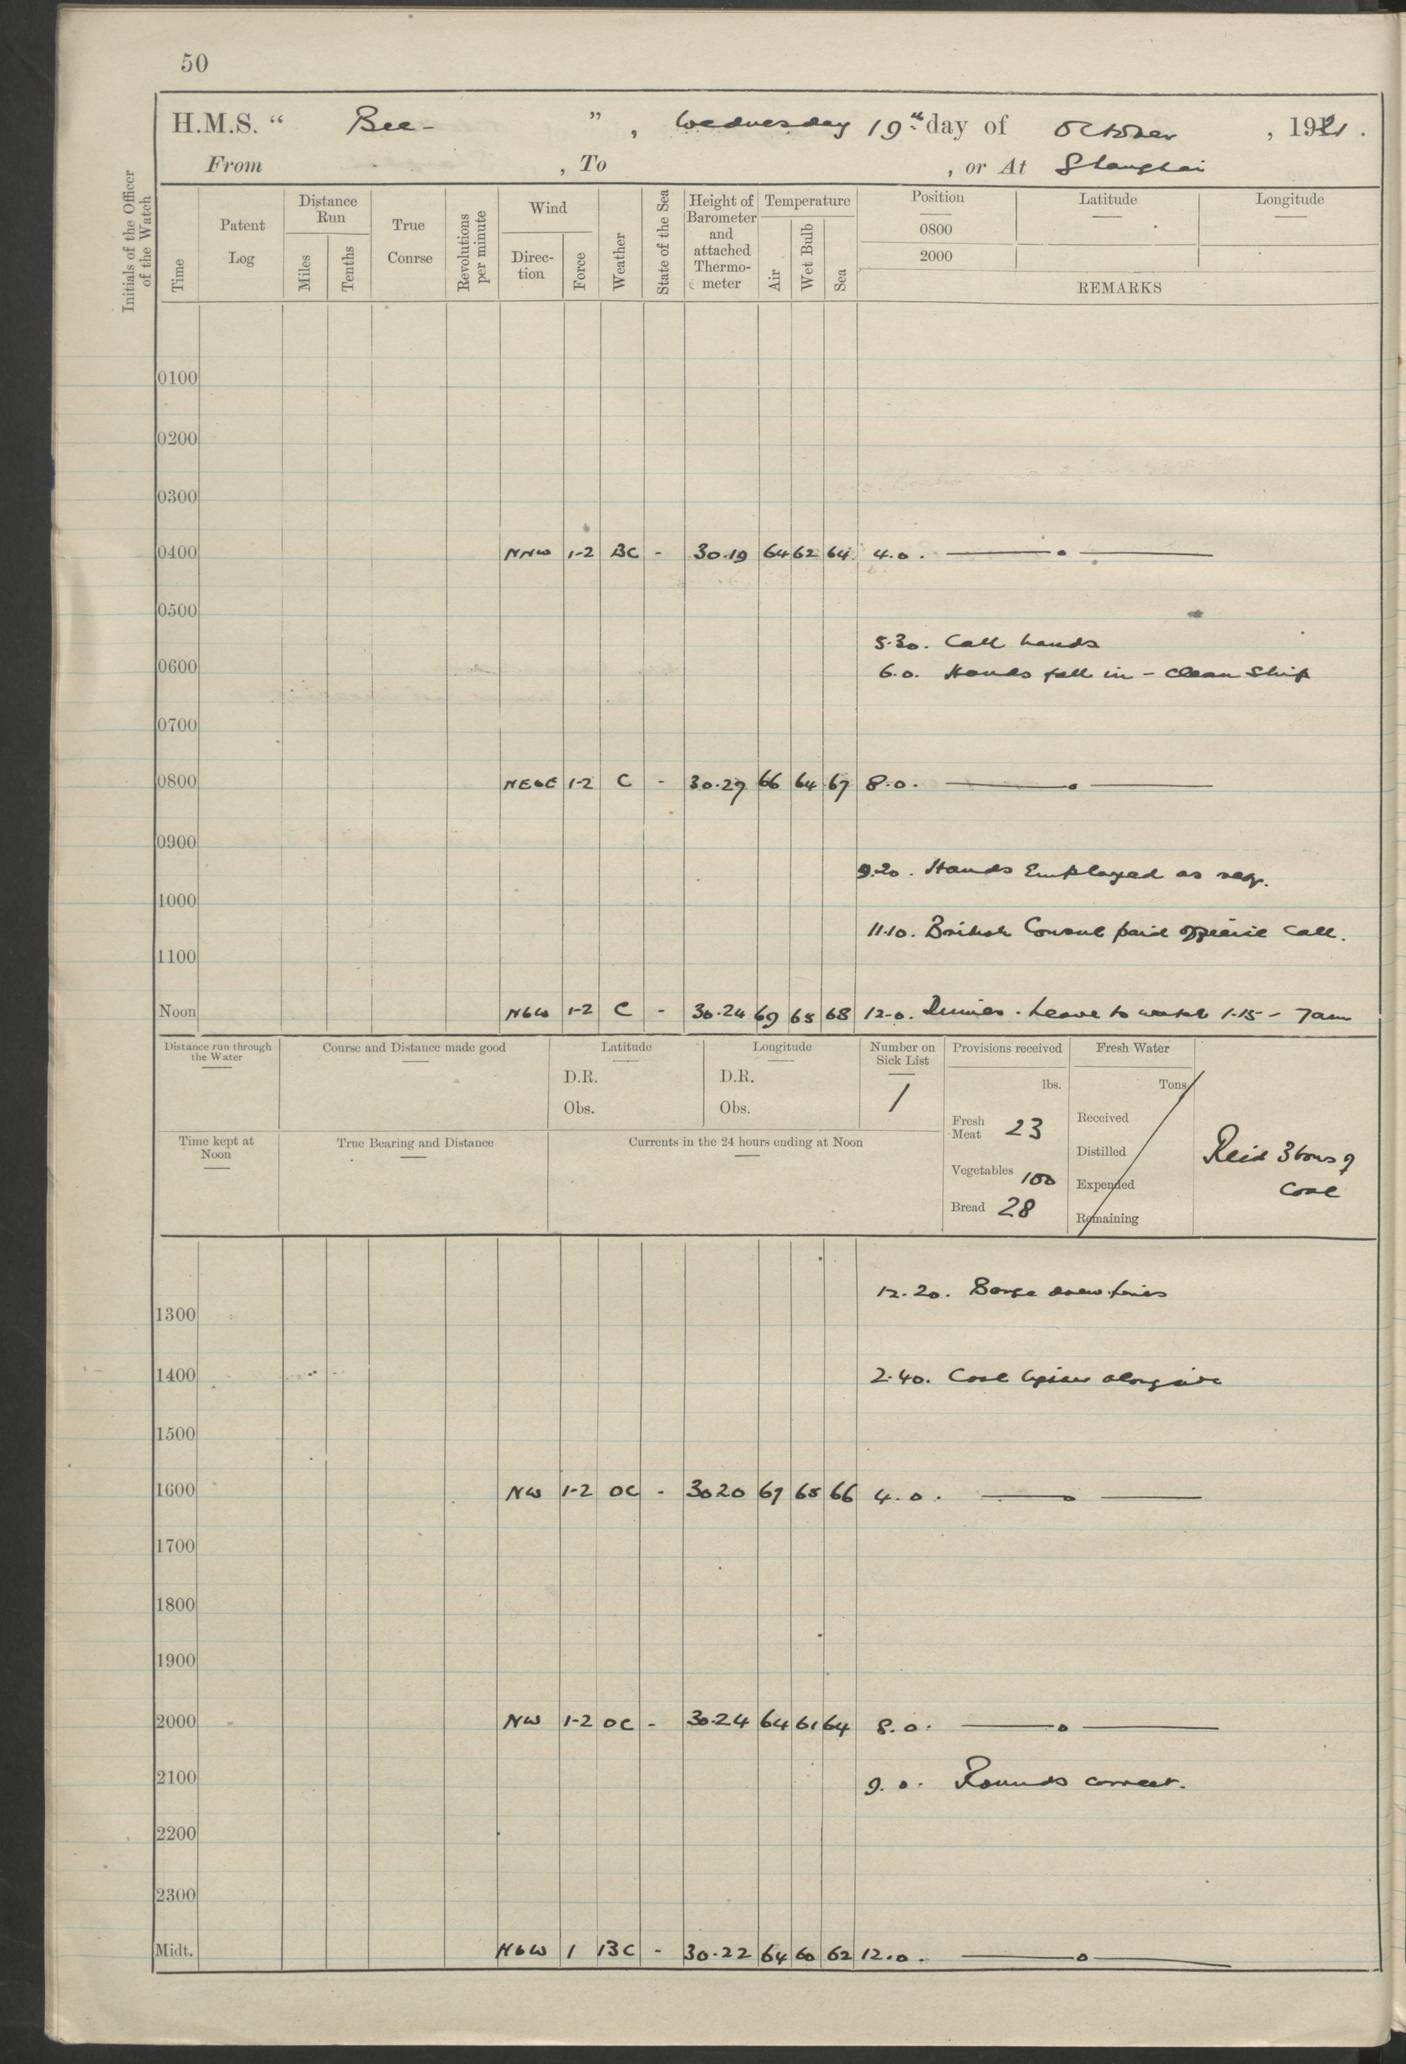 50
H.M.S. " Bee - ", Wednesday 19th day of October, 1921.
From , To , or At Shanghai
Initials of the Officer of the Watch
Time
Patent Log
Distance Run
Miles
Tenths
True Conrse
Revolutions per minute
Wind
Direc-tion
Force
Weather
State of the Sea
Height of Barometer and attached Thermo-meter
Temperature
Air
Wet Bulb
Sea
Position
0800
2000
Latitude
Longitude
REMARKS
0100
0200
0300
0400 NNW 1-2 BC - 30.19 64 62 64 4.0.
0500
5.30. Call hands
0600
6.0. Hands fall in - Clean Ship
0700
0800 NEbE 1-2 C - 30.27 66 64 67 8.0.
0900
9.20. Hands Employed as req.
1000
11.10. British Consul paid official call.
1100
Noon NbW 1-2 C - 30.24 69 65 68 12.0. Dinner. Leave to watch 1.15 - 7am
Distance run through the Water
Course and Distance made good
Latitude
D.R.
Obs.
Longitude
D.R.
Obs.
Number on Sick List
1
Provisions received
lbs.
Fresh Meat 23
Vegetables 100
Bread 28
Fresh Water
Tons
Received
Distilled
Expended
Remaining
Recd 3 tons of
Coal
Time kept at Noon
True Bearing and Distance
Currents in the 24 hours ending at Noon
12.20. drew fires
1300
1400
2.40. Coal lighter alongside
1500
1600 NW 1-2 OC - 30 20 67 65 66 4.0.
1700
1800
1900
2000 NW 1-2 OC - 30.24 64 61 64 8.0.
2100
9.0. Rounds correct.
2200
2300
Midt. NbW 1 BC - 30.22 64 60 62 12.0.